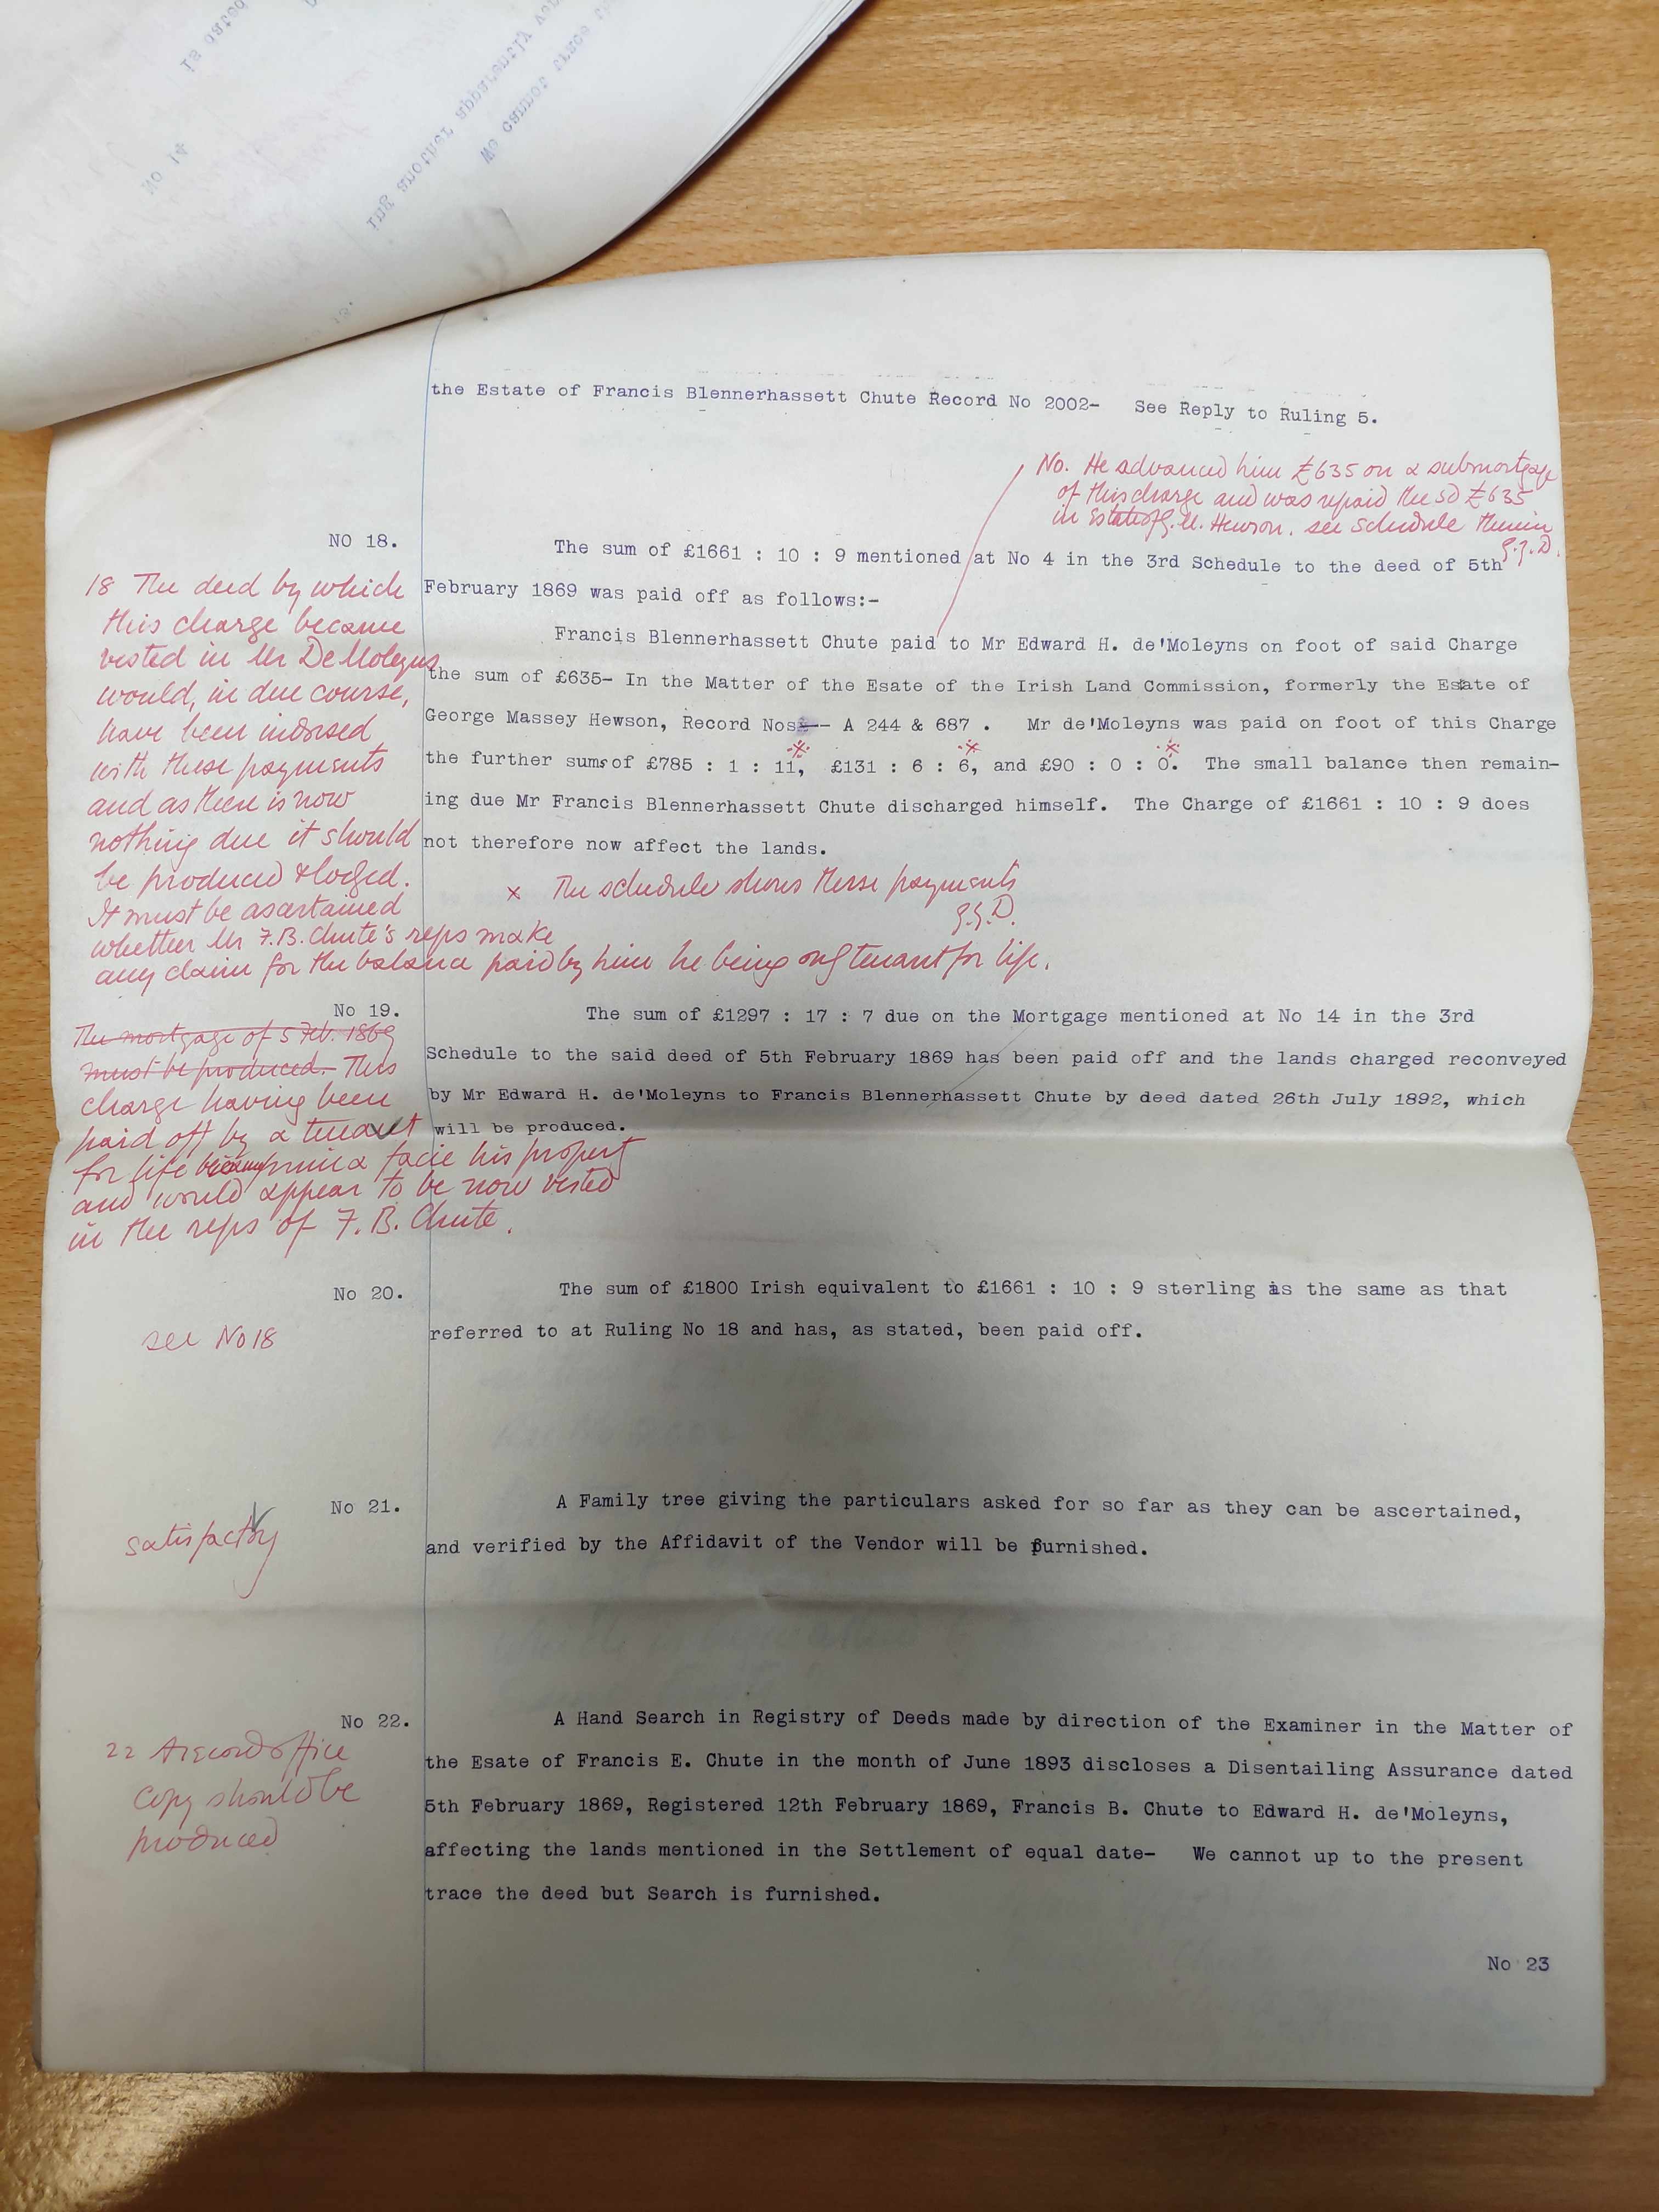 the Estate of Francis Blennerhassett Chute Record No 2002- See Reply to Ruling 5.
No. He advanced him £635 on a submortgage
of this charge and was repaid the sd £635
in Estate of G. M. Hewson. see schedule therein
NO 18.
The sum of £1661 : 10 : 9 mentioned at No 4 in the 3rd Schedule to the deed of 5th
February 1869 was paid off as follows:-
Francis Blennerhassett Chute paid to Mr Edward H. de'Moleyns on foot of said Charge
the sum of £635- In the Matter of the Esate of the Irish Land Commission, formerly the Estate of
George Massey Hewson, Record Nos - A 244 & 687 . Mr de'Moleyns was paid on foot of this Charge
the further sums of £785 : 1 : 11, £131 : 6 : 6, and £90 : 0 : 0. The small balance then remain-
ing due Mr Francis Blennerhassett Chute discharged himself. The Charge of £1661 : 10 : 9 does
not therefore now affect the lands.
x The schedule shows these payments
18 The deed by which
this charge became
vested in Mr De Moleyns
would, in due course,
have been indorsed
with these payments
and as there is now
nothing due it should
be produced & lodged.
It must be ascertained
whether Mr F.B. Chute's reps make
any claim for the balance paid by him he being only tenant for life.
No 19.
The sum of £1297 : 17 : 7 due on the Mortgage mentioned at No 14 in the 3rd
Schedule to the said deed of 5th February 1869 has been paid off and the lands charged reconveyed
by Mr Edward H. de'Moleyns to Francis Blennerhassett Chute by deed dated 26th July 1892, which
will be produced.
The mortgage of 5 Feb. 1869
must be produced. This
charge having been
paid off by a tenant
for life prima facie his property
and would appear to be now vested
in the reps of F. B. Chute.
No 20.
The sum of £1800 Irish equivalent to £1661 : 10 : 9 sterling is the same as that
referred to at Ruling No 18 and has, as stated, been paid off.
see No 18
No 21.
A Family tree giving the particulars asked for so far as they can be ascertained,
and verified by the Affidavit of the Vendor will be furnished.
satisfactory
No 22.
A Hand Search in Registry of Deeds made by direction of the Examiner in the Matter of
the Esate of Francis E. Chute in the month of June 1893 discloses a Disentailing Assurance dated
5th February 1869, Registered 12th February 1869, Francis B. Chute to Edward H. de'Moleyns,
affecting the lands mentioned in the Settlement of equal date- We cannot up to the present
trace the deed but Search is furnished.
22 A record office
copy should be
produced
No 23